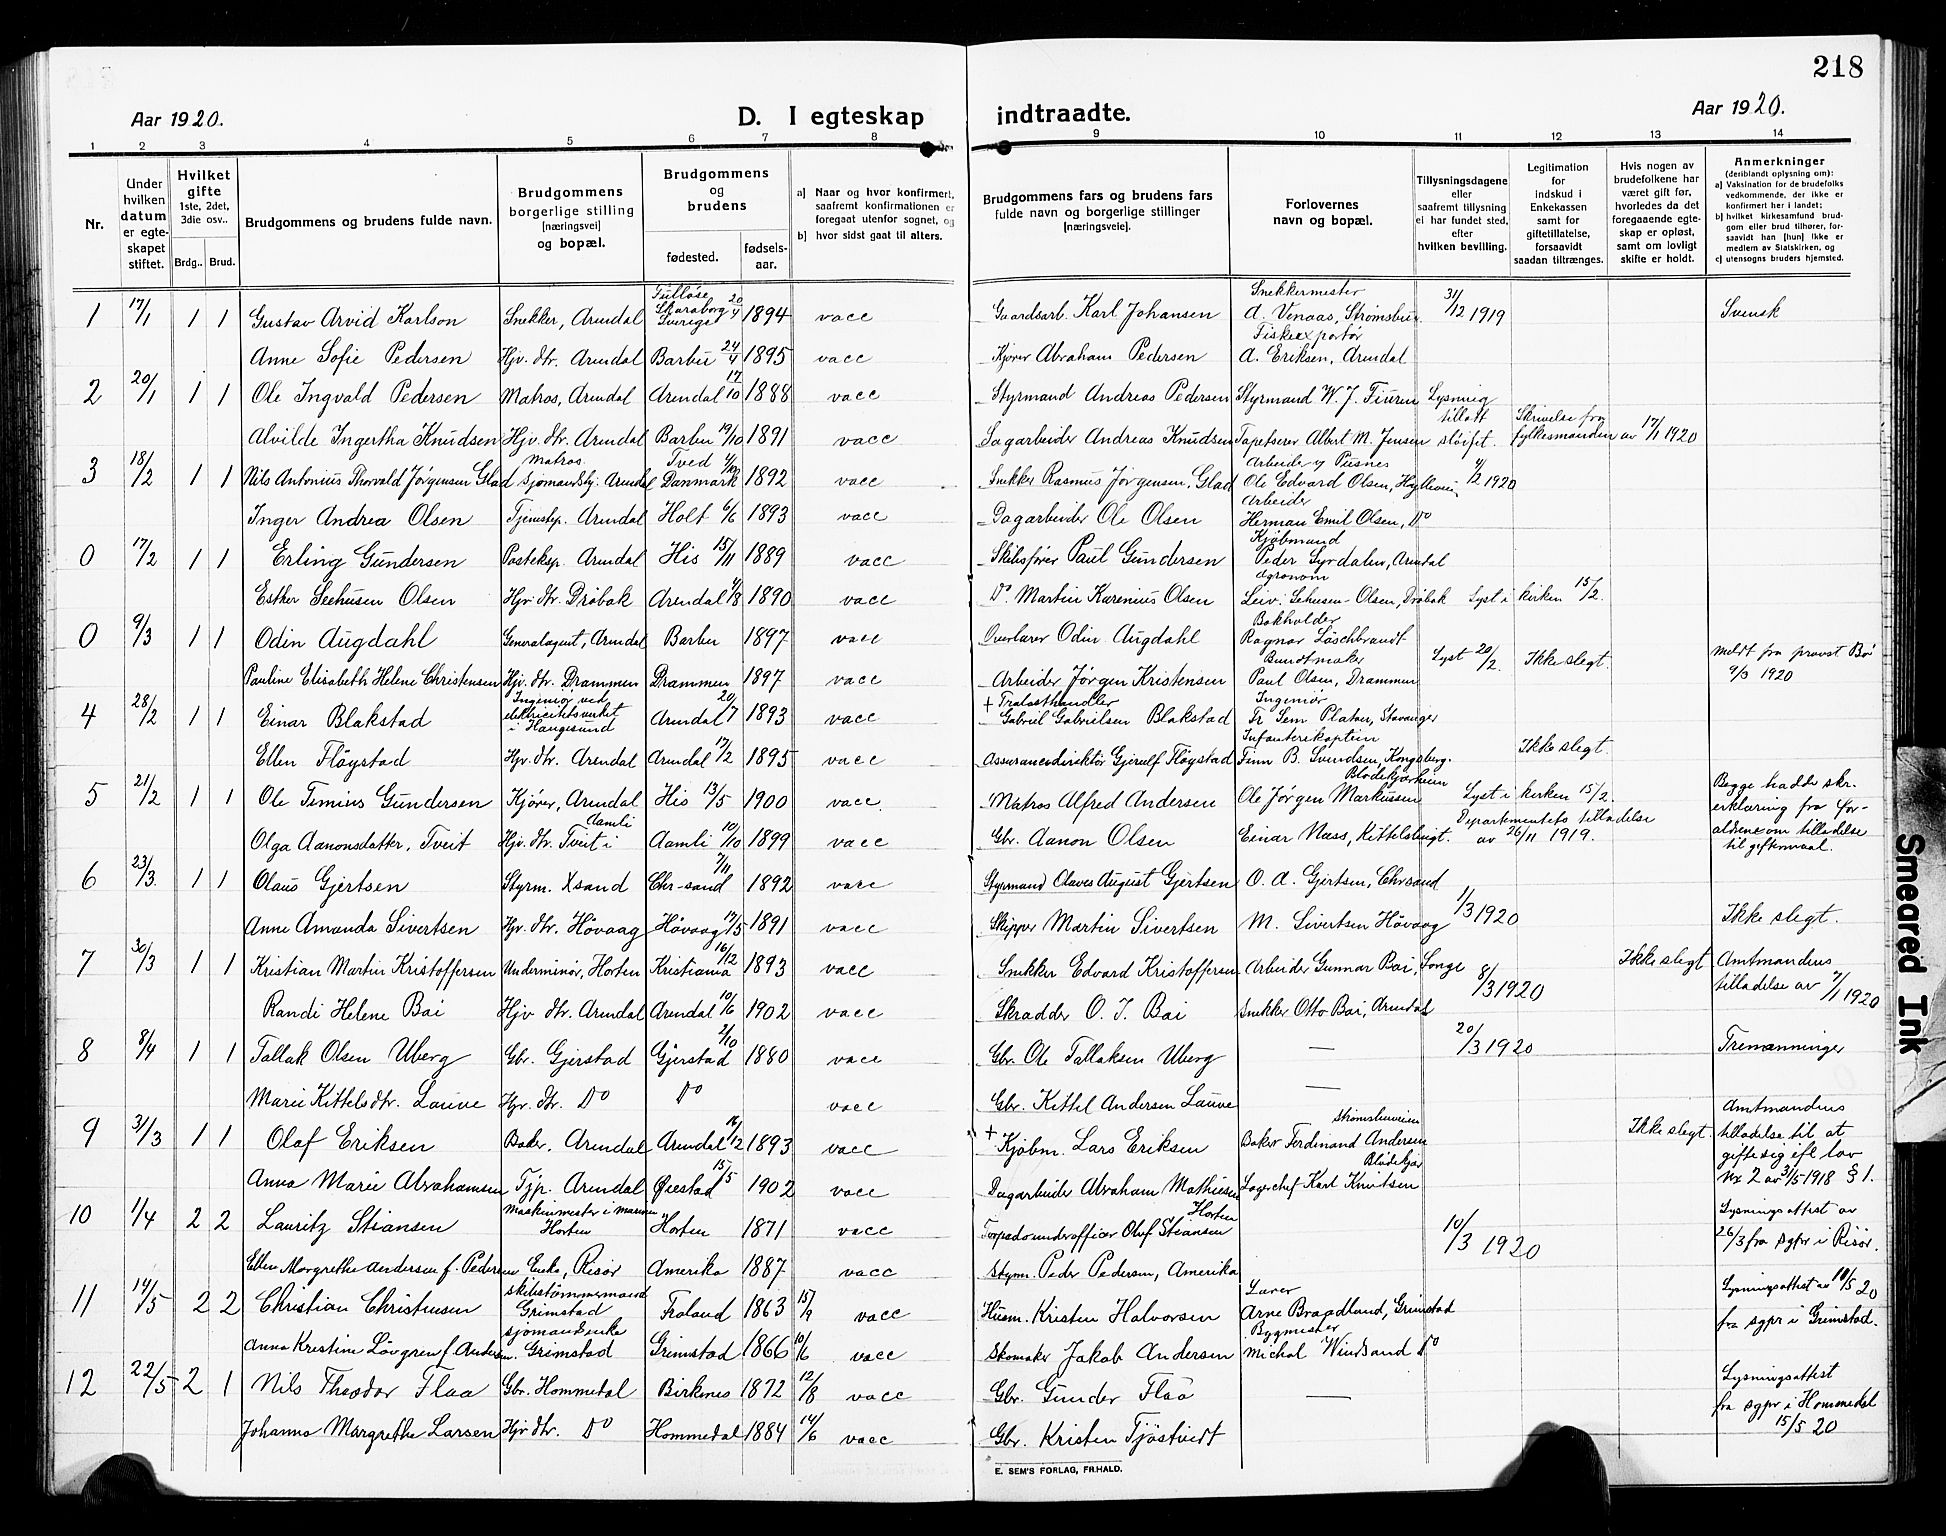 218
Aar 1920.
D. I egteskap indtraadte.
Aar 1920.
1 2 3 4 5 6 7 8 9 10 11 12 13 14
Nr.
Under hvilken datum er egteskapet stiftet.
Hvilket gifte 1ste, 2det, 3die osv..
Brdg.. Brud.
Brudgommens og brudens fulde navn.
Brudgommens borgerlige stilling [næringsvei] og bopæl.
Brudgommens og brudens
fødested. fødsels-aar.
a] Naar og hvor konfirmert, saafremt konfirmationen er foregaat utenfor sognet, og
b] hvor sidst gaat til alters.
Brudgommens fars og brudens fars fulde navn og borgerlige stillinger [næringsveie].
Forlovernes navn og bopæl.
Tillysningsdagene eller saafremt tillysning ei har fundet sted, efter hvilken bevilling.
Legitimation for indskud i Enkekassen samt for giftetillatelse, forsaavidt saadan tiltrænges.
Hvis nogen av brudefolkene har været gift før, hvorledes da det foregaaende egteskap er opløst, samt om lovligt skifte er holdt.
Anmerkninger (deriblandt oplysning om):
a) Vaksination for de brudefolks vedkommende, der ikke er konfirmert her i landet;
b) hvilket kirkesamfund brudgom eller brud tilhører, forsaavidt han [hun] ikke er medlem av Statskirken, og
c) utensogns bruders hjemsted.
1 17/1 1 1 Gustav Arvid Karlson Snekker, Arendal Skaraborg Sverige 20/4 1894 vacc Gaardsarb. Karl Johansen Snekkermester A. Venaas, Strømsbu 31/12 1919 Svensk
Anne Sofie Pedersen Hjv. dtr. Arendal Barbu 24/4 1895 vacc Kjører Abraham Pedersen Fiskeexportør A. Eriksen, Arendal
2 20/1 1 1 Ole Ingvald Pedersen Matros, Arendal Arendal 17/10 1888 vacc Styrmand Andreas Pedersen Styrmand W. J. Fiuren Lysning tillatt
Alvilde Ingertha Knudsen Hjv. dtr. Arendal Barbu 19/10 1891 vacc Dagarbeider Andreas Knudsen Tapetserer Albert M. Jensen sløifet. Skrivelse fra fylkesmanden av 17/1 1920
3 18/2 1 1 Nils Antonius Thorvald Jørgensen Glad Matros sjømandsbg. Arendal Tved Danmark 1892 vacc Snekker Rasmus Jørgensen, Glad Arbeider Pusnes Ole Edvard Olsen, 4/2 1920
Inger Andrea Olsen Tjenestep. Arendal Holt 6/6 1893 vacc Dagarbeider Ole Olsen Arbeider Herman Emil Olsen, Do
0 17/2 1 1 Erling Gundersen Posteksp. Arendal His 15/11 1889 vacc Skibsfører Paul Gundersen Kjøbmand Peder Syrdalen, Arendal
Esther Seehusen Olsen Hjv. dtr. Drøbak Arendal 4/8 1890 vacc Do. Martin Karenius Olsen agronom Leiv. Sehusen-Olsen, Drøbak Lyst i kirken 15/2.
0 9/3 1 1 Odin Augdahl Generalagent, Arendal Barbu 1897 vacc Overlærer Odin Augdahl Bokholder Ragnar Löschbrandt Lyst 20/2. Ikke slegt. Meldt fra provst Bø 9/3 1920
Pauline Elisabeth Helene Christensen Hjv. dtr. Drammen Drammen 1897 vacc Arbeider Jørgen Kristensen Buntmaker Paul Olsen, Drammen
4 28/2 1 1 Einar Blakstad Ingeniør ved elektricitetsverket i Haugesund Arendal 20/7 1893 vacc + Trælasthandler Gabriel Gabrielsen Blakstad Ingeniør Fr. Sem Platou, Stavanger
Ellen Fløystad Hjv. dtr. Arendal Arendal 17/2 1895 vacc Assurancedirektør Gjerulf Fløystad Infanterikaptein Finn B. Svendsen, Kongsberg. Ikke slegt.
5 21/2 1 1 Ole Temius Gundersen Kjører, Arendal His 13/5 1900 vacc. Matros Alfred Andersen Ole Jørgen Markussen Blødekjærheim Lyst i kirken 15/2. Begge hadde skr. erklæring fra forældrene om tilladelse til giftermaal.
Olga Aanonsdatter, Tveit Hjv. dtr. Tveit i Aamli Aamli 10/10 1899 vacc Gbr. Aanon Olsen Einar Næss, Kittelsbugt. Departementets tilladelse av 26/11 1919.
6 23/3. 1 1 Olaus Gjertsen Styrm. Xsand Chr-sand 7/11 1892 vacc Styrmand Olaves August Gjertsen O. A. Gjertsen, Chrsand
Anne Amanda Sivertsen Hjv. dtr. Høvaag Høvaag 17/5 1891 vacc Skipper Martin Sivertsen M. Sivertsen Høvaag 1/3 1920 Ikke slegt.
7 30/3 1 1 Kristian Martin Kristoffersen Underminør, Horten Kristiania 16/12 1893 vacc Snekker Edvard Kristoffersen Arbeider Gunnar Bai, Songe 8/3 1920 Ikke slegt Amtmandens tilladelse av 7/1 1920
Randi Helene Bai Hjv dtr. Arendal Arendal 10/6 1902 vacc Skrædder O. J. Bai Snekker Otto Bai, Arendal
8 8/4 1 1 Tallak Olsen Uberg Gbr. Gjerstad Gjerstad 2/10 1880 vacc Gbr. Ole Tallaksen Uberg — 20/3 1920 Tremænninger
Marie Kittelsdtr. Lauve Hjv. dtr. Do Do vacc Gbr. Kittel Andersen Lauve —
9 31/3 1 1 Olaf Eriksen Baker, Arendal Arendal 16/12 1893 vacc + Kjøbm. Lars Eriksen Strømsbuveien Baker Ferdinand Andersen Ikke slegt. Amtmandens tilladelse til at gifte sig efl. lov nr 2 av 31/5 1918 § 1.
Anna Marie Abrahamsen Tjp. Arendal Øiestad 15/5 1902 vacc Dagarbeider Abraham Mathiesen Blødekjær Lagerchef Karl Knutsen
10 1/4 2 2 Lauritz Stiansen Maskinmester i marinen Horten Horten 1871 vacc Torpedounderofficer Oluf Stiansen Horten 10/3 1920 Lysningsattest av 26/3 fra sgpr i Risør.
Ellen Margrethe Andersen f. Pedersen Enke, Risør Amerika 1887 vacc Styrm. Peder Pedersen, Amerika
11 14/5 2 2 Christian Christensen skibstømmermand Grimstad Froland 1863 15/9 vacc Husm. Kristen Halvorsen Lærer Arne Braadland, Grimstad Lysningsattest av 10/5 20 fra sgpr i Grimstad.
Anna Kristine Løvgren f. Andersen. sjømandsenke Grimstad Grimstad 1866 10/6 vacc Skomaker Jakob Andersen Bygmester Michal Windsand Do
12 22/5 2 1 Nils Theodor Flaa Gbr. Hommedal Birkenes 1872 12/8 vacc Gbr. Gunder Flaa — Lysningsattest fra sgpr i Hommedal 15/5 20
Johanna Margrethe Larsen Hjv dtr. Do Hommedal 1884 14/6 vacc Gbr. Kristen Tjøstvedt
E. SEM'S FORLAG, FR.HALD.
Smeared Ink